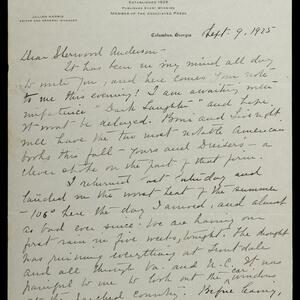 ESTABLISHED 1828
PUBLISHED EVERY MORNING
MEMBER OF THE ASSOCIATED PRESS
JULIAN HARRIS
EDITOR AND GENERAL MANAGER
Columbus, Georgia
Sept. 9, 1925
Dear Sherwood Anderson –
It has been in my mind all day
to write you, and here comes your note
to me this evening! I am awaiting with
impatience "Dark Laughter" and hope
it wont be delayed. Boni and Liveright
will have the two most notable American
books this fall – yours and Dreiser's – a
clever stroke on the part of that firm.
I returned last Saturday and
landed in the worst heat of the summer
– 106° here the day I arrived, and almost
as bad ever since. We are having our
first rain in five weeks, tonight. The drought
was ruining everything at
and all through Va. and N.C. It was
painful to me to look out the car windows
at the parched country. Before leaving,